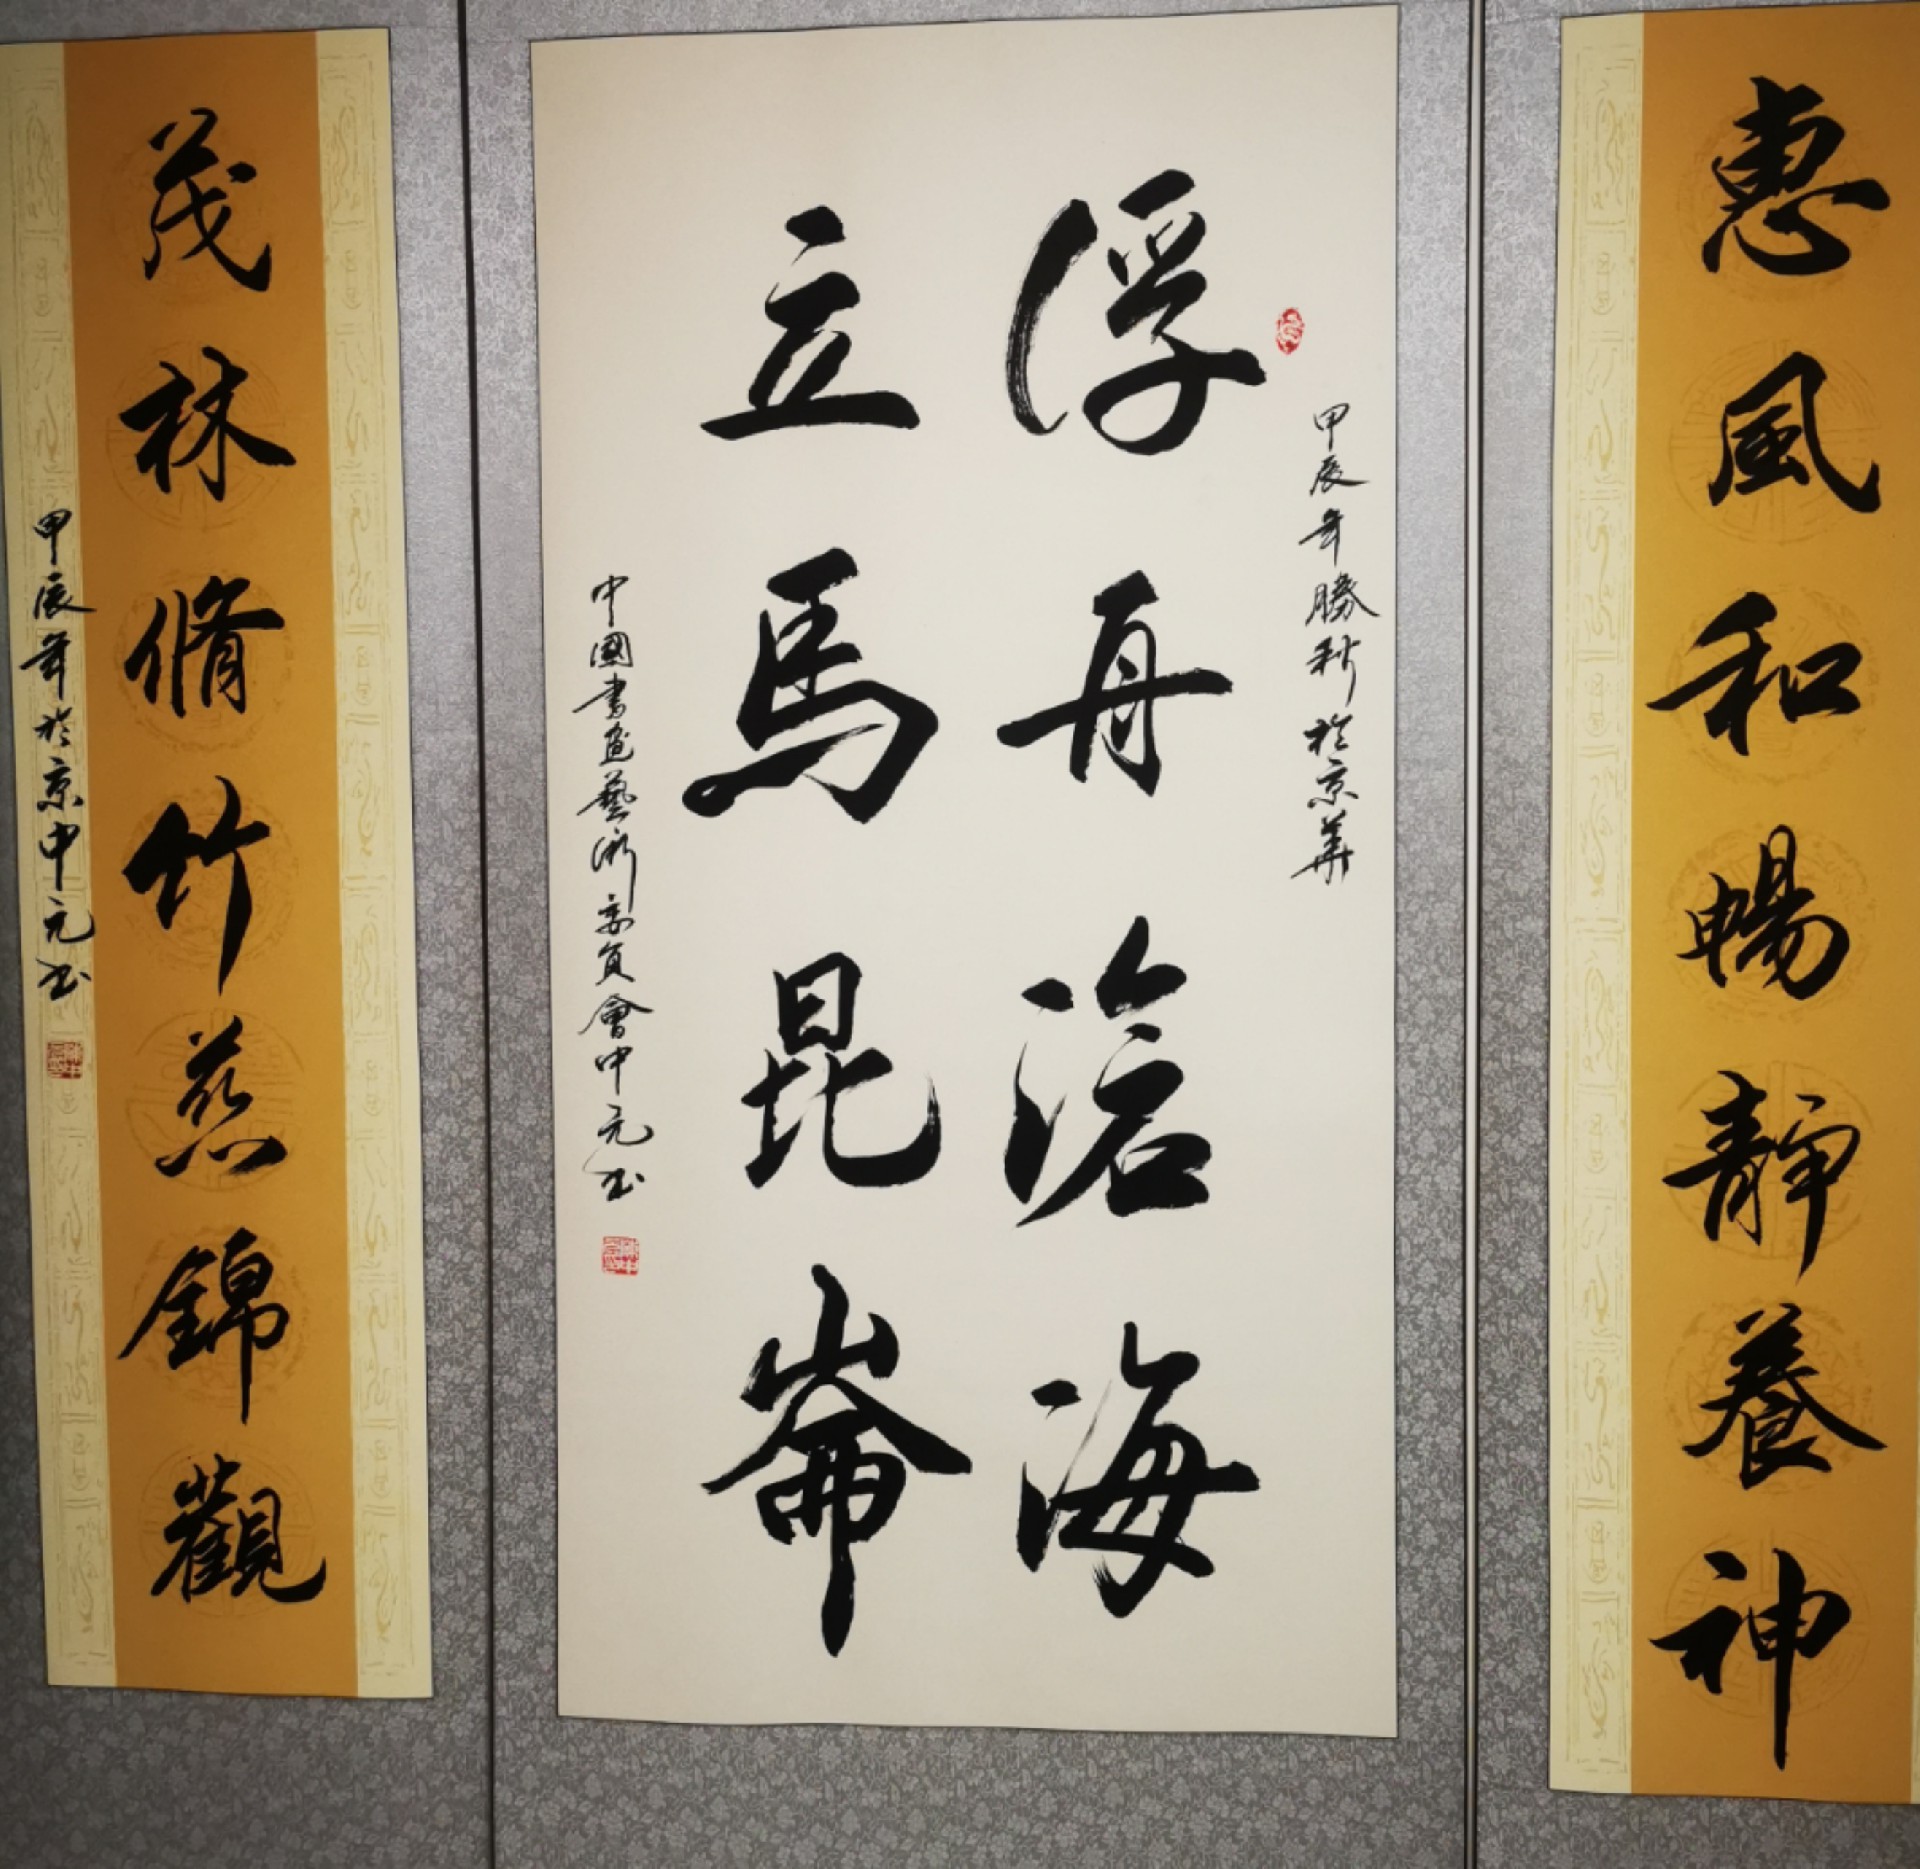 惠風和暢靜養神
甲辰年勝秋於京華
浮舟滄海
立馬昆崙
中國書畫藝術委員會中元书
茂林脩竹 錦觀
甲辰年於京中元书